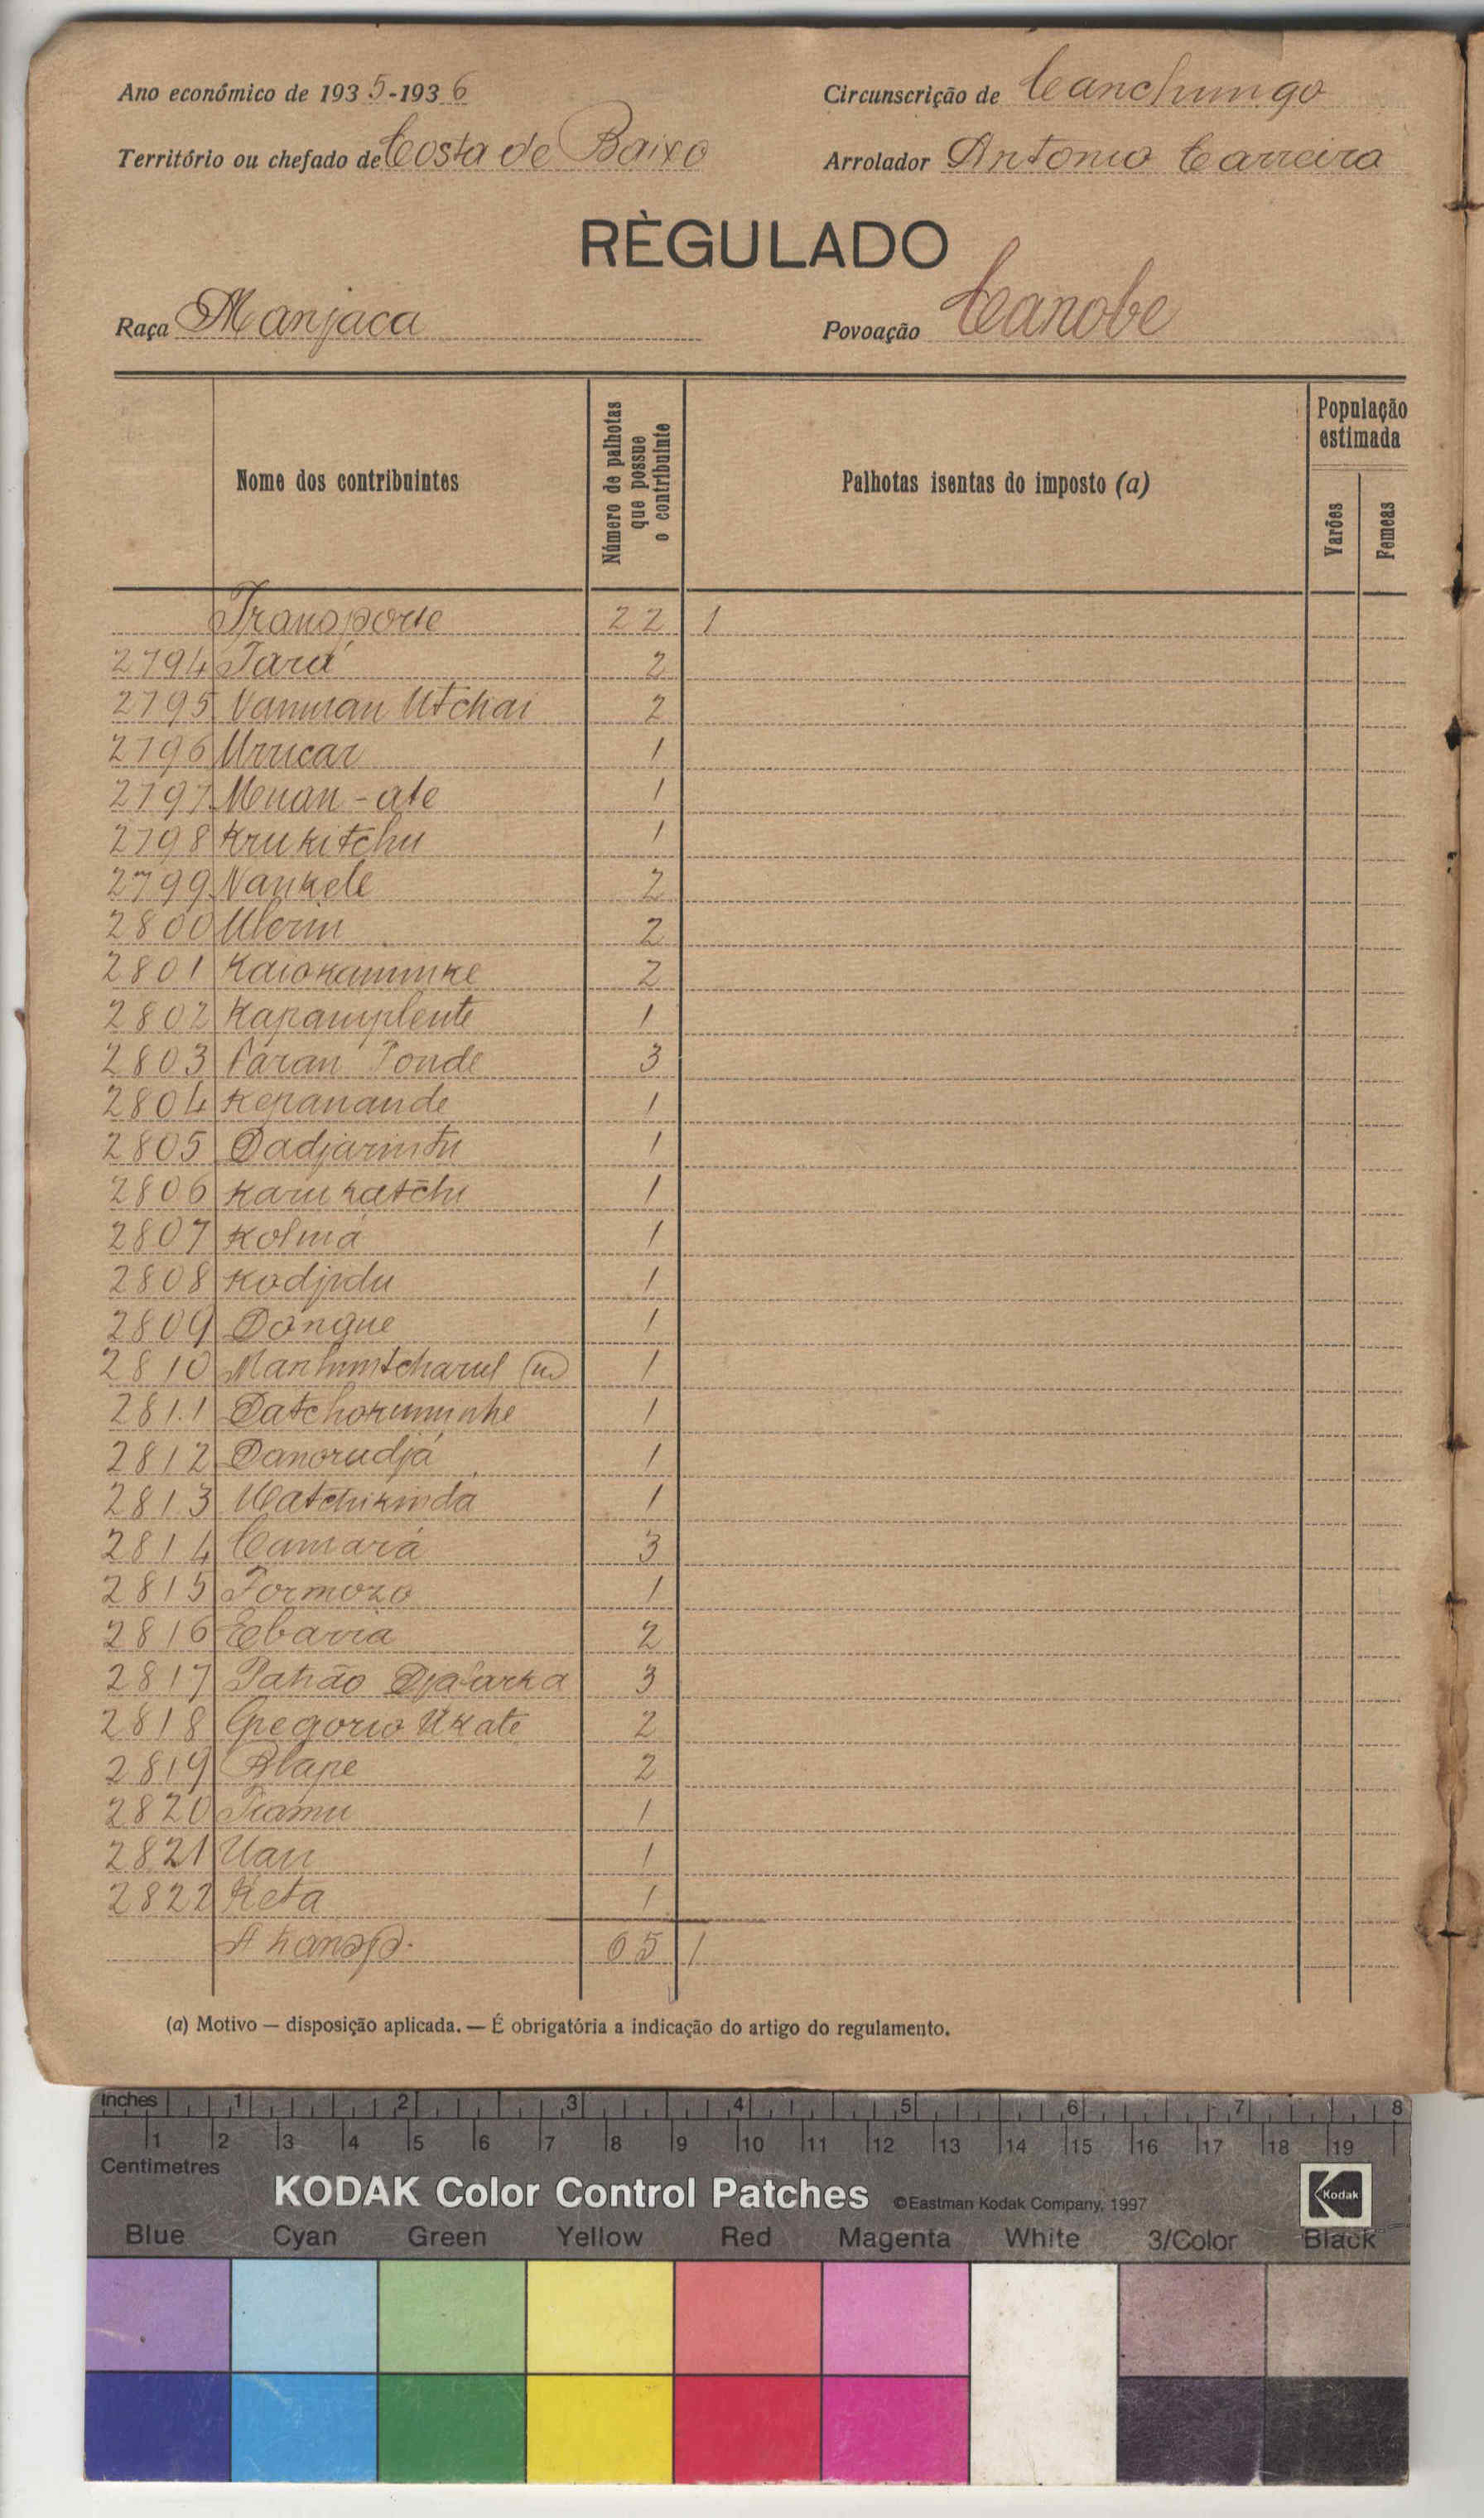 Ano económico de 1935-1936
Circunscrição de Canchungo
Território ou chefado de Costa de Baixo
Arrolador Antonio Carreira
RÈGULADO
Raça Manjaca
Povoação Canobe
Nome dos contribuintes
Número de palhotas que possue o contribuinte
Palhotas isentas do imposto (a)
População estimada
Varões
Femeas
Transporte 22 1
2794 Tará 2
2795 Vanman Utchai 2
2796 Urucar 1
2797 Menan-ate 1
2798 Krukitchu 1
2799 Nankele 2
2800 2
2801 2
2802 Kapamplente 1
2803 3
2804 Kepanande 1
2805 Dadjarintu 1
2806 Karukatchu 1
2807 Kolmá 1
2808 Kodjidu 1
2809 Dongue 1
2810 1
2811 1
2812 Danorudjá 1
2813 Watchikinda 1
2814 Camará 3
2815 Formozo 1
2816 Ebarra 2
2817 3
2818 Gregorio Ukate 2
2819 Blape 2
2820 Tiamu 1
2821 Uan 1
2822 Keta 1
A transp. 65 1
(a) Motivo — disposição aplicada. — É obrigatória a indicação do artigo do regulamento.
Inches 1 2 3 4 5 6 7 8
1 2 3 4 5 6 7 8 9 10 11 12 13 14 15 16 17 18 19
Centimetres
KODAK Color Control Patches ©Eastman Kodak Company, 1997 Kodak
Blue Cyan Green Yellow Red Magenta White 3/Color Black